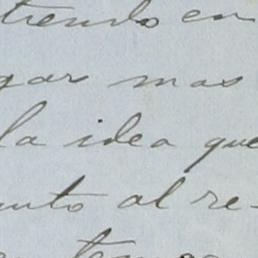 tiendo en
gar mas
la idea que
unto al re-